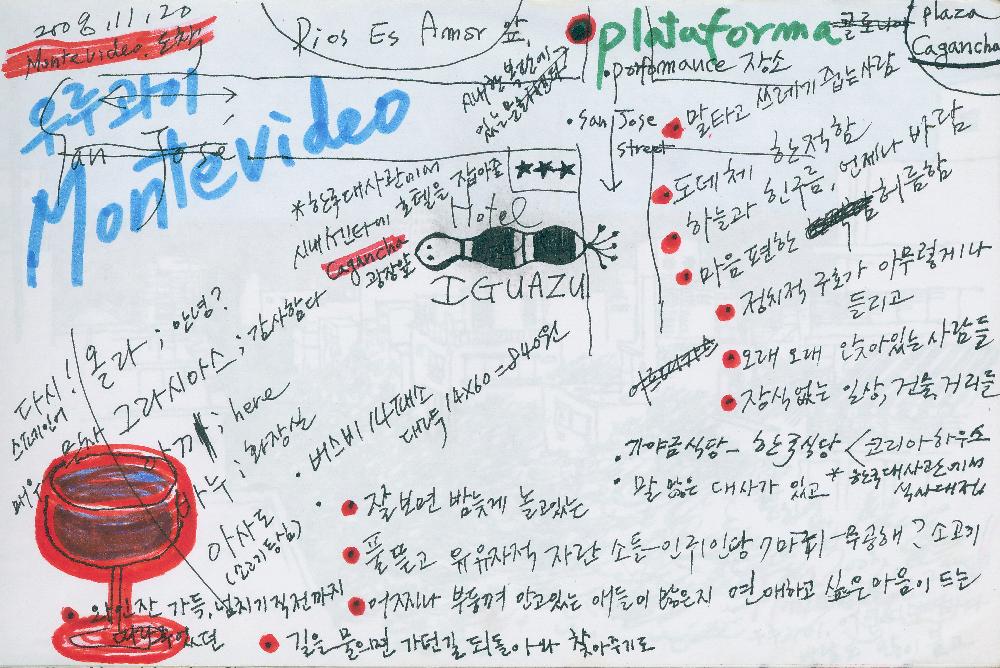 2008, 11, 20
Montevideo. 도착
우루과이
Montevideo
San José
Dios Es Amor 앞,
plataforma
plaza
Cagancha
performance 장소
쓰레기 줍는 사람
말타고
San Jose
street
한적함
도데체
하늘과 흰구름, 언제나 바람
마음 편한 허름함
정치적 구호가 아무렇게나
들리고
오래 오래 앉아있는 사람들
장식없는 일상, 건물, 거리들
*한국대사관이어
호텔을 잡아준
시내 센타에
Cagancha
광장앞
★★★
Hotel
IGUAZU
다시!
스페인어
올라 ; 안녕?
그라시아스 ; 감사합다
; here
; 화장실
아사도
(소고기
버스비 14페소
대략 14x60=840원
가야금식당 - 한국식당 < 코리아하우스
말 많은 대사가 있고 *한국대사관에서
식사대접
잘 보면 밤늦게 놀고있는
풀뜯고 유유자적 자란 소들-인구1인당 7마리-무공해? 소고기
와인잔 가득, 넘치기 직전까지
어찌나 부둥켜 안고있는 애들이 많은지 연애하고 싶은 마음이 드는
길을 물으면 가던길 되돌아와 찾아주기도